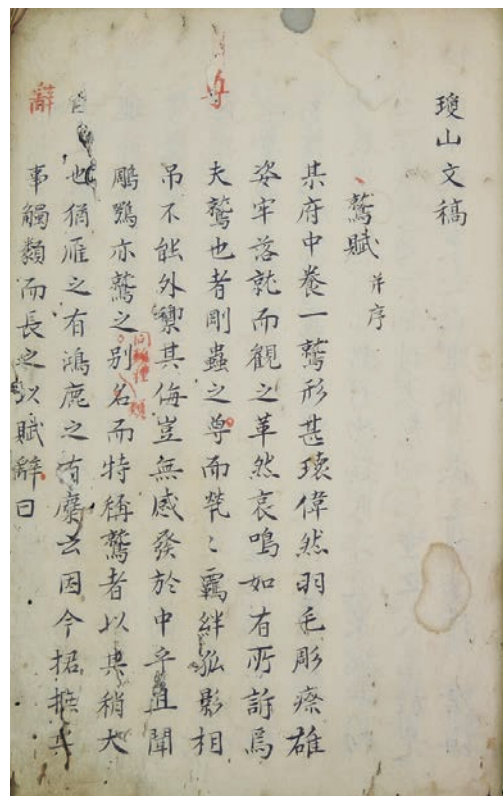 瓊山文稿
鷲賦并序
某府中養一鷲形甚瓌偉然羽毛彫瘵雄
姿牢落就而觀之革然哀鳴如有所訴焉
夫鷲也者剛蟲之尊而煢〻羈絆孤影相
吊不能外禦其侮豈無感發於中乎且聞
鵰鶚亦鷲之別名而特稱鷲者以其稍大
同種類
也猶雁之有鴻鹿之有麋云因今捃摭其
事觸類而長之以賦辭曰
尊
辭